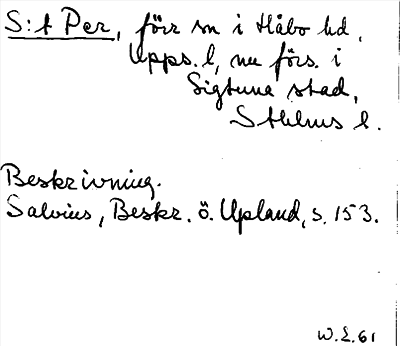 S:t Per, förr sn i Håbo hd,
Upps. l, nu förs. i
Sigtuna stad,
Sthlms l.
Beskrivning.
Salvius, Beskr. ö. Upland, s. 153.
W.E. 61